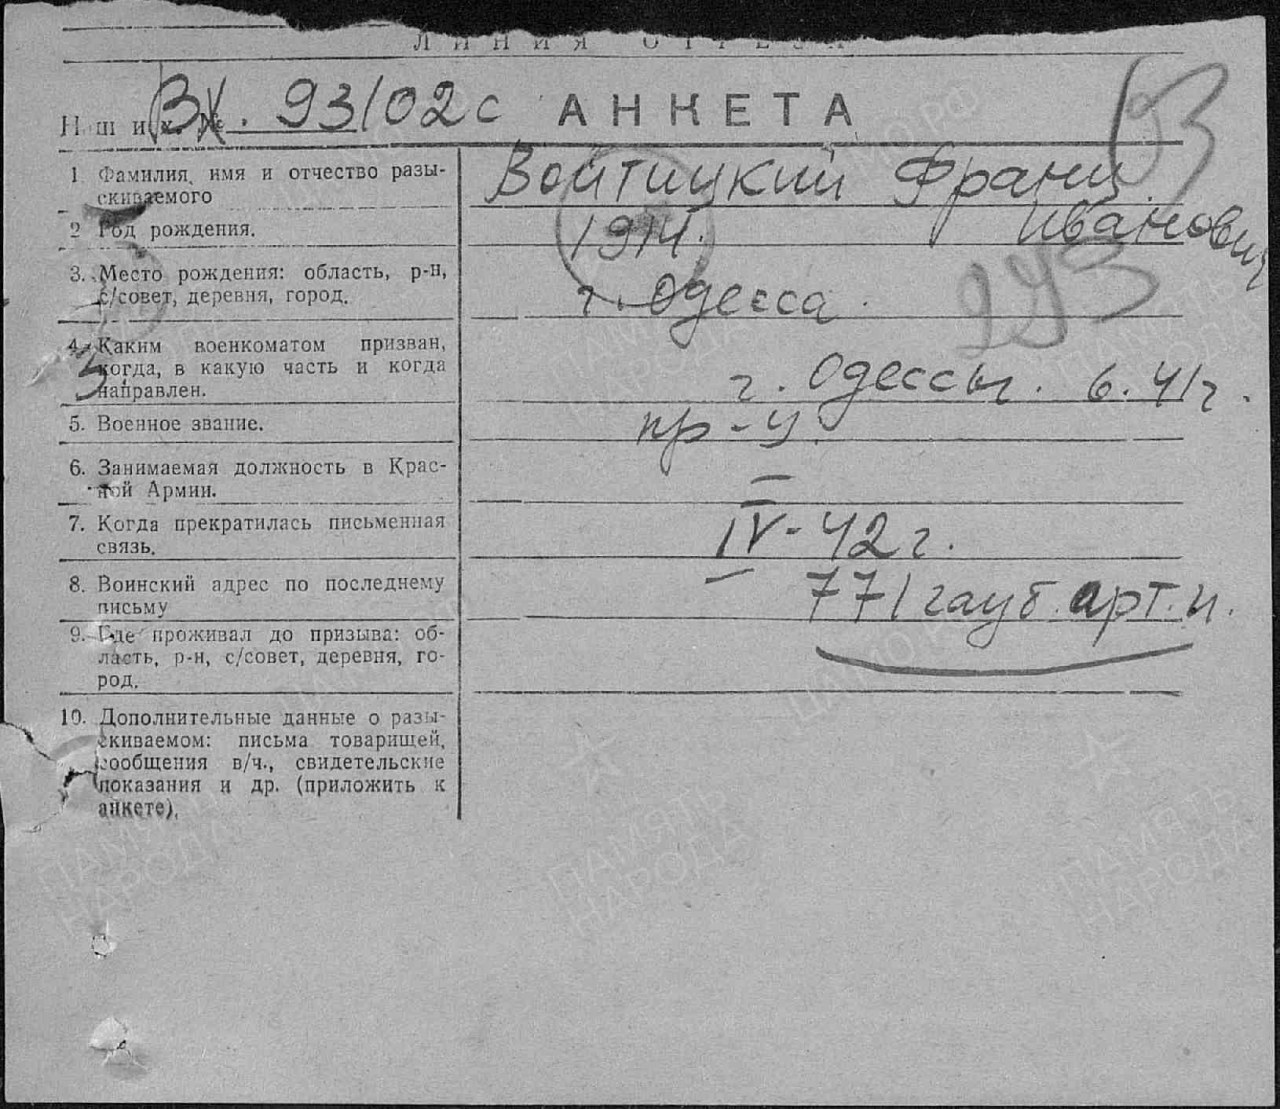 ЛИНИЯ ОТРЕЗА
Наш вх. № Вх. 93102с АНКЕТА
93
1 Фамилия, имя и отчество разы-
скиваемого
Войтицкий Франц
Иванович
2 Год рождения.
1914.
3. Место рождения: область, р-н,
с/совет, деревня, город.
г. Одесса.
293
4. Каким военкоматом призван,
когда, в какую часть и когда
направлен.
г. Одессы. 6.41г.
5. Военное звание.
кр-ц
6. Занимаемая должность в Крас-
ной Армии.
–
7. Когда прекратилась письменная
связь.
IV-42г.
8. Воинский адрес по последнему
письму
771 гауб. арт. п.
9. Где проживал до призыва: об-
ласть, р-н, с/совет, деревня, го-
род.
10. Дополнительные данные о разы-
скиваемом: письма товарищей,
сообщения в/ч., свидетельские
показания и др. (приложить к
анкете).
ПАМЯТЬ
НАРОДА
ПАМЯТЬ
НАРОДА
ПАМЯТЬ
НАРОДА